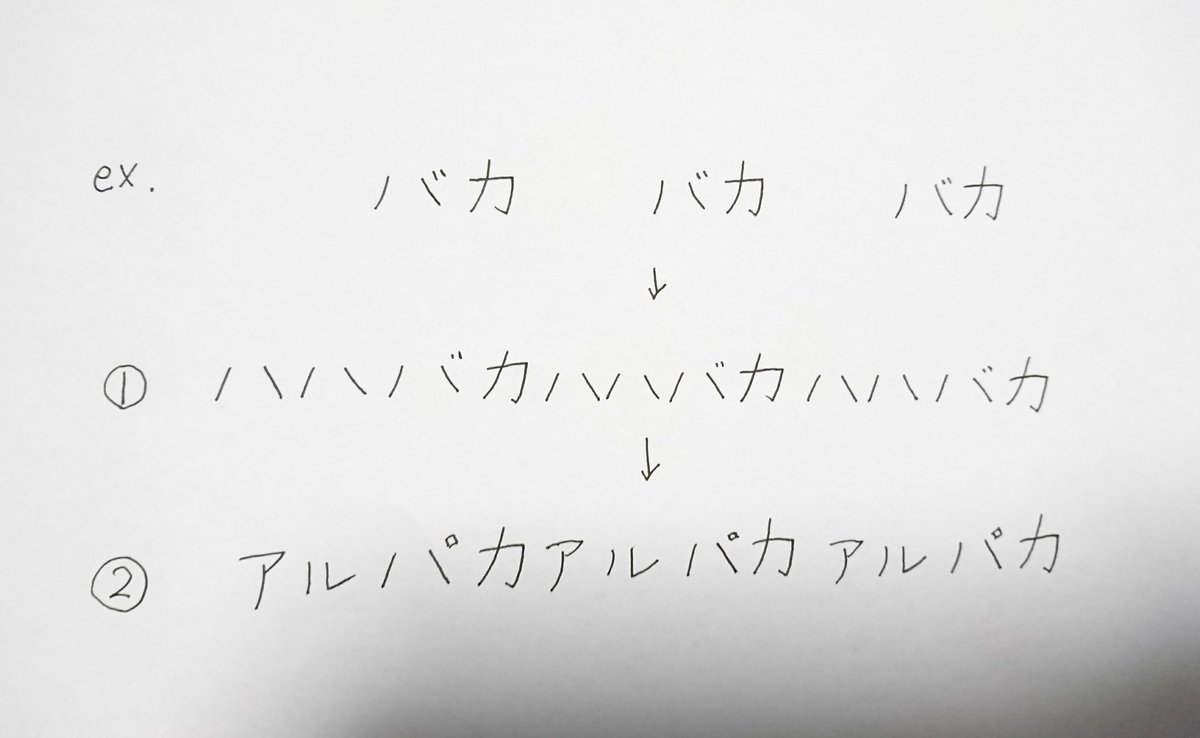 ex. バカ バカ バカ
↓
① ハハバカハハバカハハバカ
↓
② アルパカアルパカアルパカ